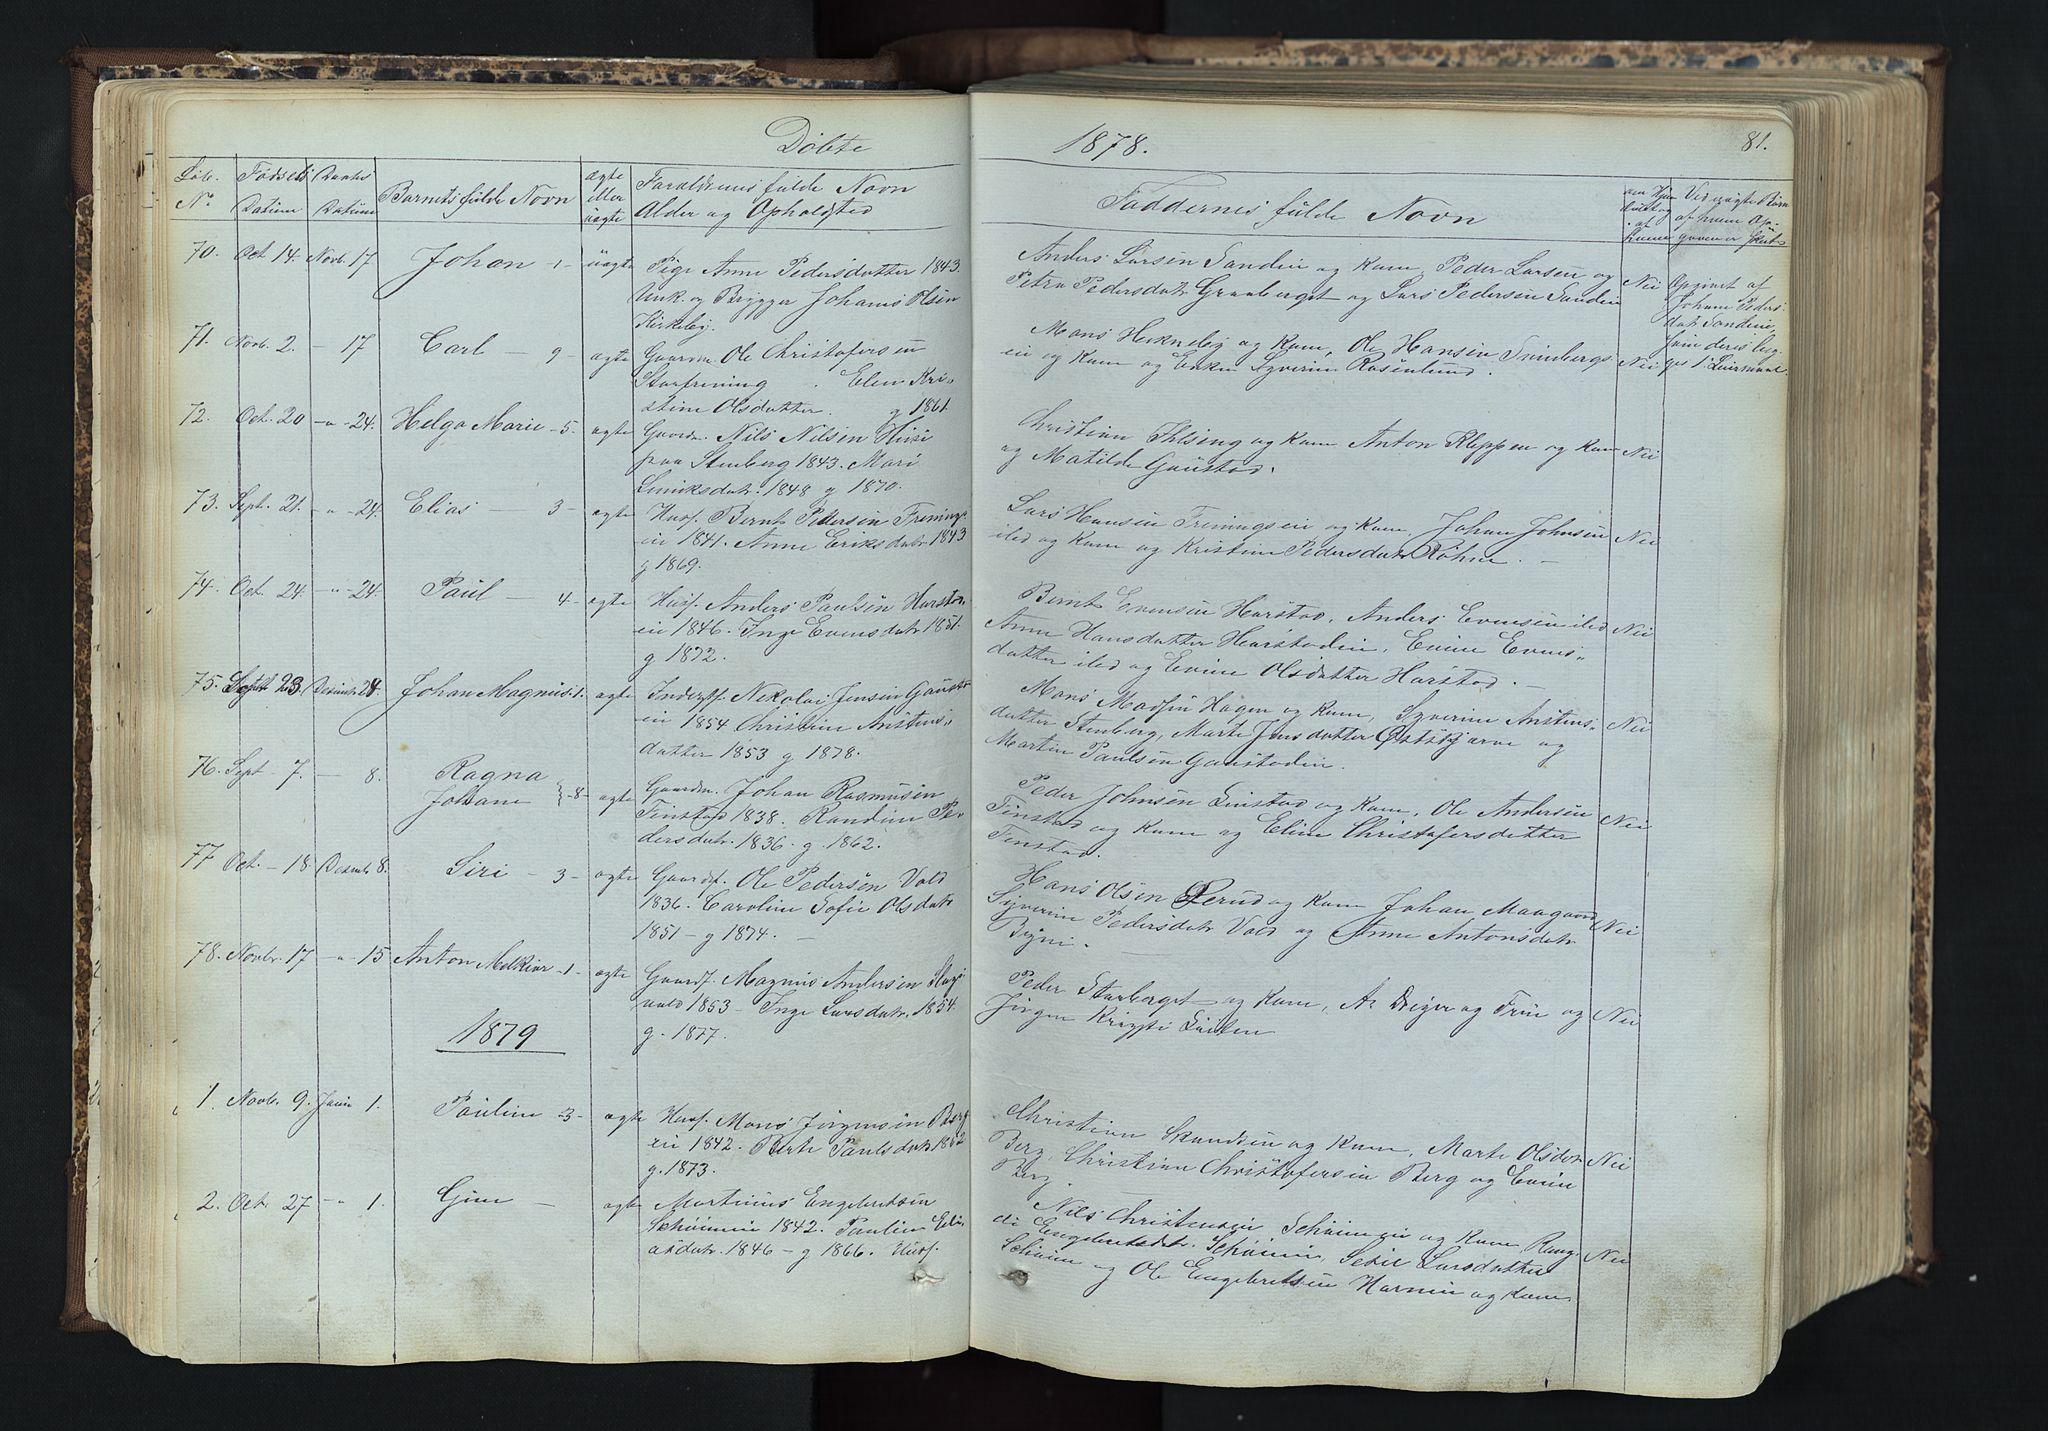 Döbte 1878. 81.
Löb. No
Födsels Datum
Daabs Datum
Barnets fulde Navn
ægte eller uægte
Forældrenes fulde Navn
Alder og Opholdsted
Faddernes fulde Navn
70. Oct 14. Novb. 17 Johan -1- uægte Pige Anne Pedersdatter 1843.
Unk. og Brygger Johannes Olsen
Kirkeby.
Anders Larsen Sanden og Kone, Peder Larsen og
Petra Pedersdatr Graaberget og Lars Pedersen Sanden
Nei
Opgivet af
Johane Peders-
datr Sandene,
71. Novb. 2. - 17 Carl - 9 - ægte Gaardm. Ole Christofersen
Storfrening . Elen Kri-
stine Olsdatter. g 1861.
Mons Hekneby og Kone, Ole Hansen Svenbergs-
en og Kone og Enken Syverine Rosenlund.
Nei
72. Oct. 20 -"- 24. Helga Marie -5- ægte Gaardm. Nils Nilsen
paa Stenberg 1843. Mari
1848 g 1870.
Christian Ihlseng og Kone Anton Kleppen og Kone
og Matilde Gaustad.
Nei
73. Sept. 21. -"- 24. Elias - 3 - ægte Husf. Bernt Pedersen Frenings-
en 1841. Anne Eriksdatr 1843
g 1869.
Lars Hansen Freningseie og Kone, Johan Johnsen
ibd og Kone og Kristine Pedersdatr Röhne. -
Nei
74. Oct. 24. -"- 24. Paul - 4- ægte Husf. Anders Paulsen Harstad-
en 1846. Inge Evensdatr 1851.
g 1872.
Bernt Evensen Harstad, Anders Evensen ibd
Anne Hansdatter Harstadeie, Eline Evens-
datter ibd og Eline Olsdatter Harstad. -
Nei
75. Sept 23. Decembr 28. Johan Magnus -1- ægte Inderst. Nikolai Jensen Gaustad-
en 1854 Christine Anstens-
datter 1853 g 1878.
Mons Madsen Hagen og Kone, Syverine Anstens-
datter Stenberg, Marte Jensdatter Østskjarve og
Martin Paulsen Gaustadeie.
Nei
76. Sept - 7. - 8. Ragna
Johane } -8- ægte Gaardm. Johan Rasmusen
Finstad 1838. Randine Pe-
dersdatr. 1836. g. 1862.
Peder Johnsen Linstad og Kone, Ole Andersen
Finstad og Kone og Eline Christofersdatter
Finstad.
Nei
77 Oct. - 18 Decemb 8. Siri - 3 - ægte Gaardf. Ole Pedersen Vold
1836. Caroline Sofie Olsdatr
1851 - g 1874. -
Hans Olsen Perud og Kone, Johan Maagaard
Syverine Pedersdatr Vold og Anne Antonsdatr
Bÿni.
Nei
78. Novbr. 17 -"- 15 Anton Melkior -1- ægte Gaardf. Magnus Andersen
1853 - Inge Larsdatr. 1854.
g. 1877.
Peder Starberget og Kone, A. Driger og Frue og
Jörgen
Nei
1879
1. Novb. 9. Janu 1. Pauline -3- ægte Husf. Mons Jörgensen Berg-
en 1842. Berte Paulsdatr 1852
g. 1873.
Christian Skundsen og Kone, Marte Olsdatr
Berg, Christian Christofersen Berg og Eline
Berg.
Nei
2. Oct. 27 -"- 1. Gina - ægte Martinus Engebretsen
Schöiennen 1842. Pauline Eli-
asdatr. 1846 - g 1866. Husf.
Nils Christensen Schöienneie og Kone Rang-
di Engebretsdtr. Schöienen, Sexie Larsdatter
Schöien og Ole Engebretsen Harneie og Kone
Nei